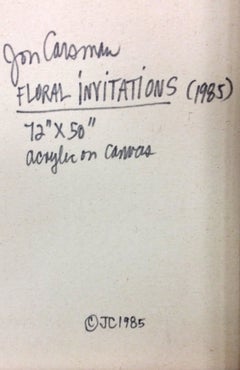 Jon Carsman
FLORAL INVITATIONS (1985)
72" X 50"
acrylic on canvas
©JC1985